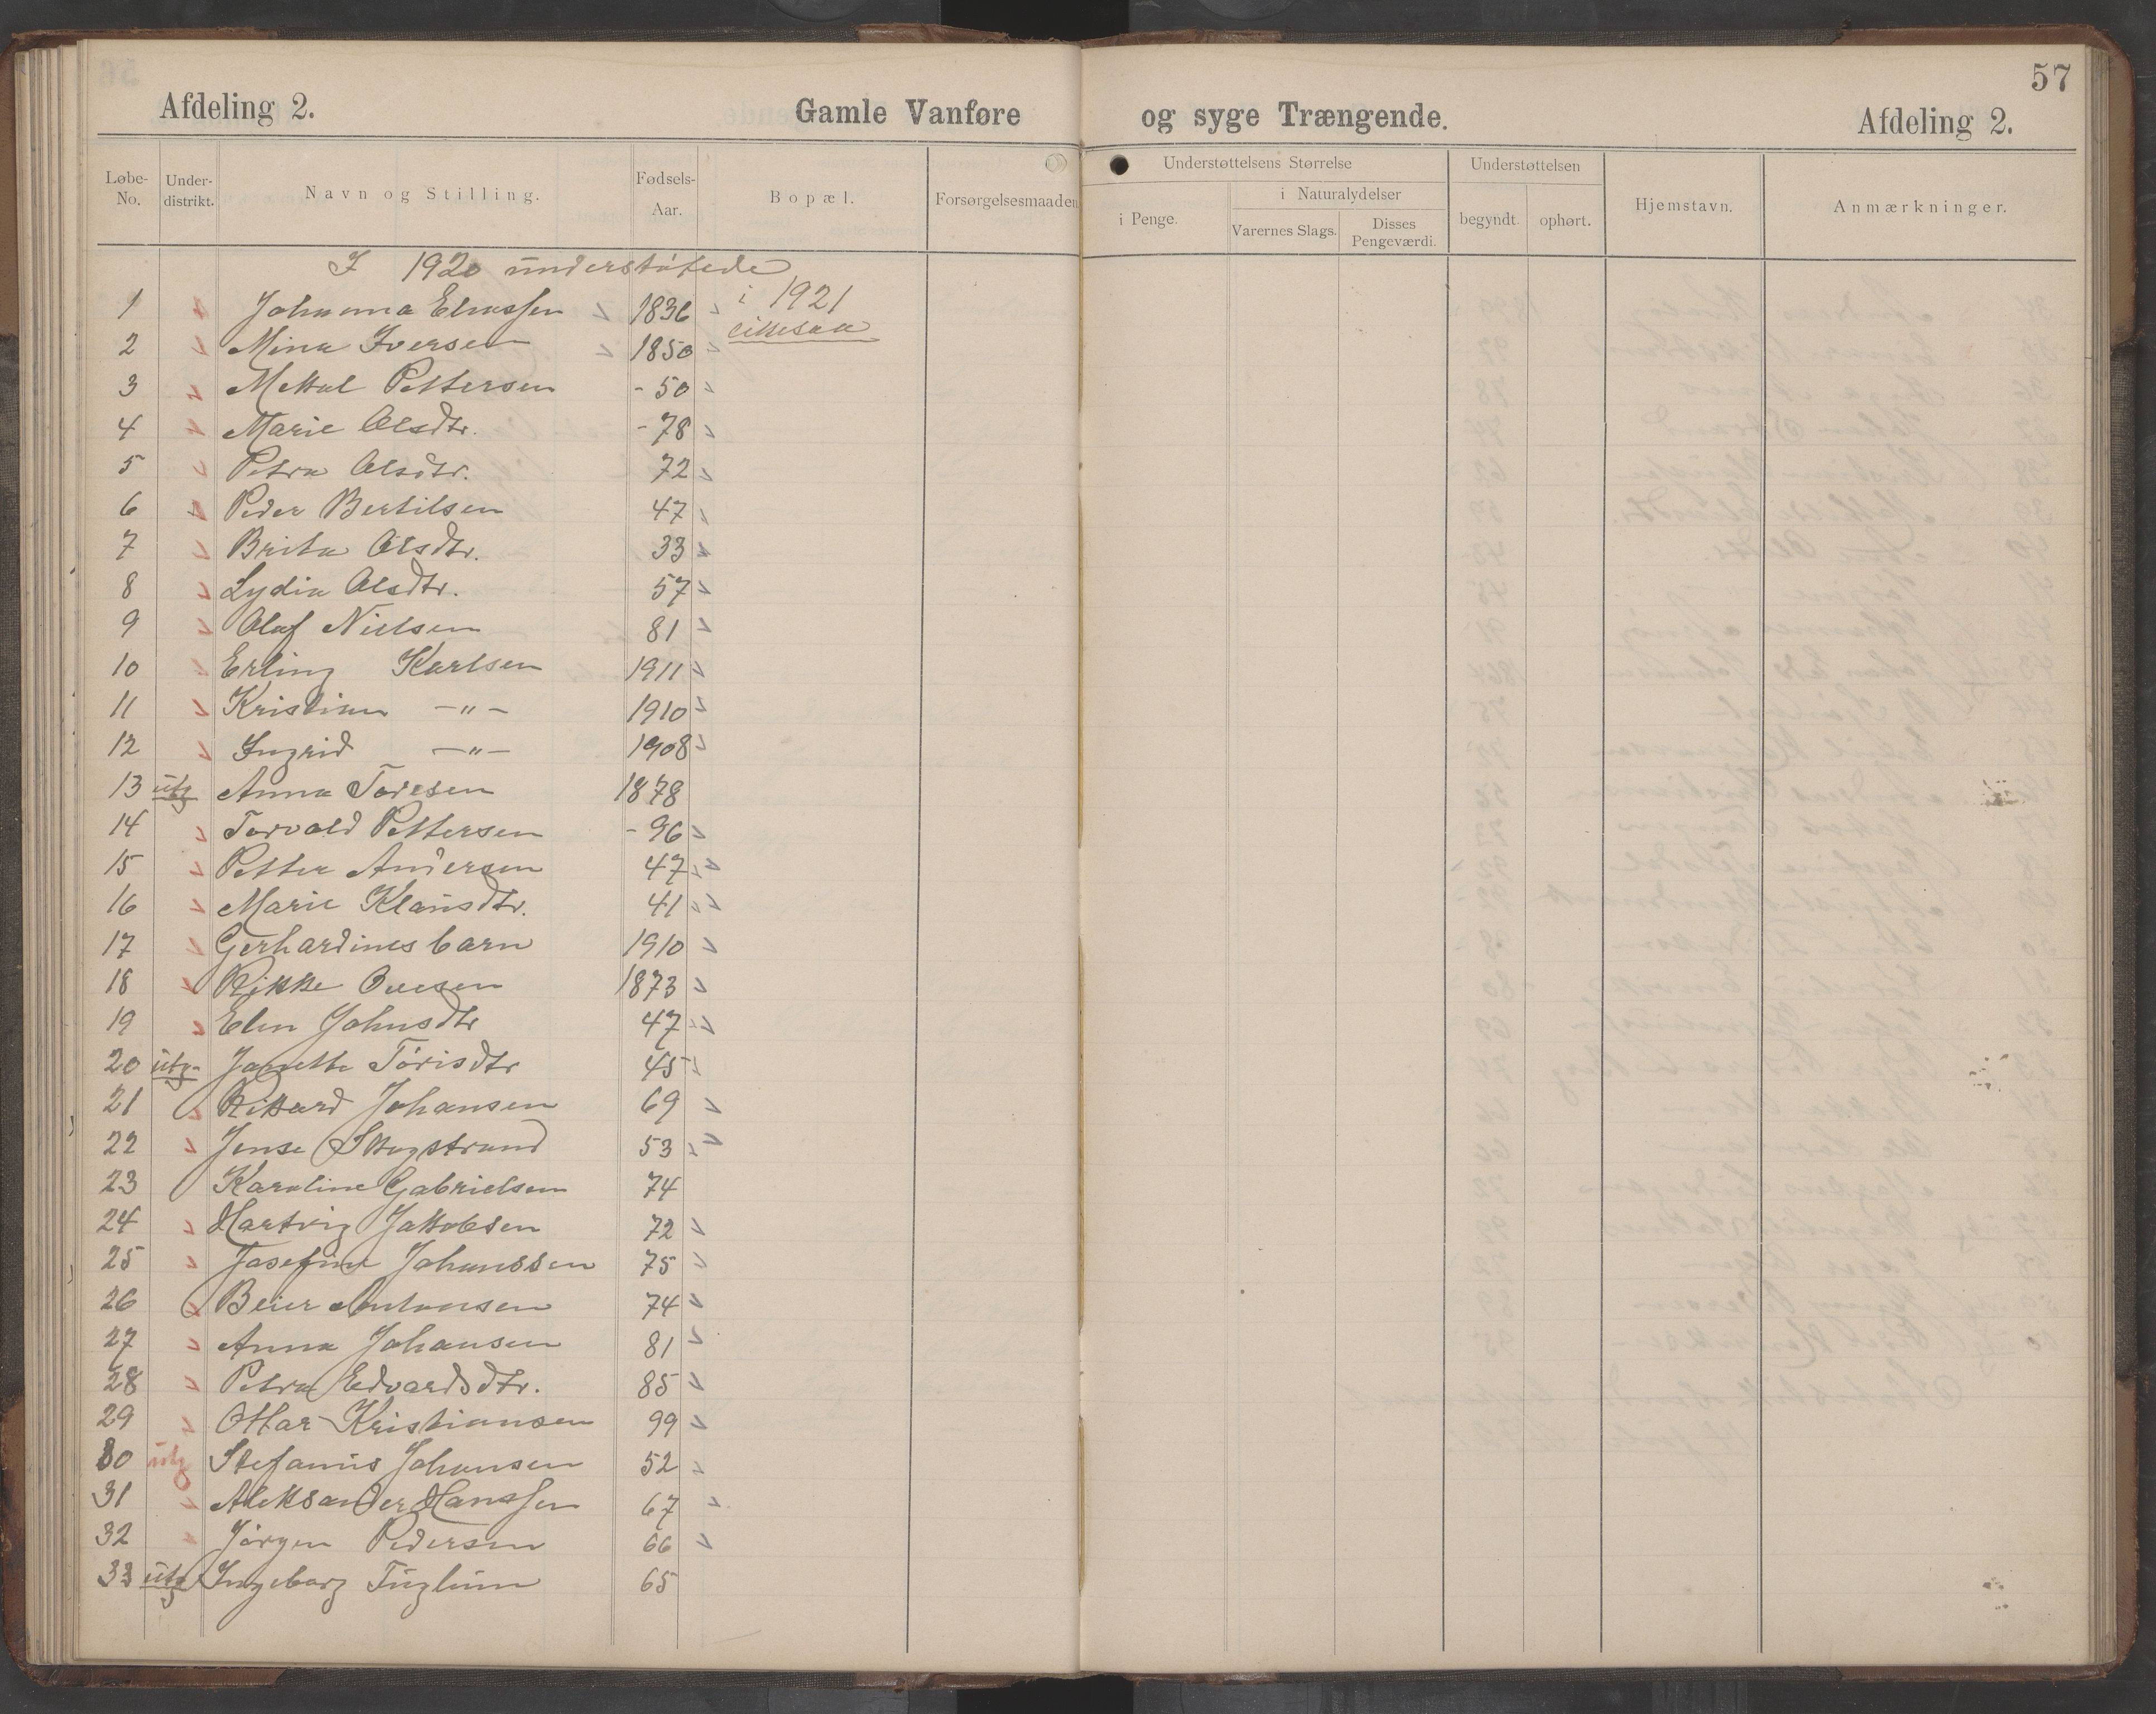 57
Afdeling 2. Gamle Vanføre og syge Trængende. Afdeling 2.
Løbe-No. Under-distrikt. Navn og Stilling. Fødsels-Aar. Bopæl. Forsørgelsesmaaden Understøttelsens Størrelse Understøttelsen Hjemstavn. Anmærkninger.
i Penge. i Naturalydelser begyndt. ophørt.
Varernes Slags. Disses Pengeværdi.
I 1920 understøtede
i 1921
likesaa
1 Johanna Eliassen 1836
2 Mina Iversen 1850
3 Mekal Pettersen - 50
4 Marie Olsdtr. - 78
5 Petra Olsdtr. 72
6 Peder Bertilsen 47
7 Brita Olsdtr. 33
8 Lydia Olsdtr. 57
9 Olaf Nielsen 81
10 Erling Karlsen 1911
11 Kristian -"- 1910
12 Ingrid -"- 1908
13 utg Anna Toresen 1878
14 Torvald Pettersen - 96
15 Petter Andersen 47
16 Marie Klausdtr. 41
17 Gerhardines barn 1910
18 Rikke Ovesen 1873
19 Elen Johnsdtr 47
20 utg. Janette Tørisdtr 45
21 Rikard Johansen 69
22 Jense Skogstrand 53
23 Karoline Gabrielsen 74
24 Hartvig Jakobsen 72
25 Josefine Johanssen 75
26 Beier Antonsen 74
27 Anna Johansen 81
28 Petra Edvardsdtr. 85
29 Ottar Kristiansen 99
30 utg Stefanus Johansen 52
31 Aleksander Hanssen 67
32 Jørgen Pedersen 66
33 utg Ingeborg Fuglum 65